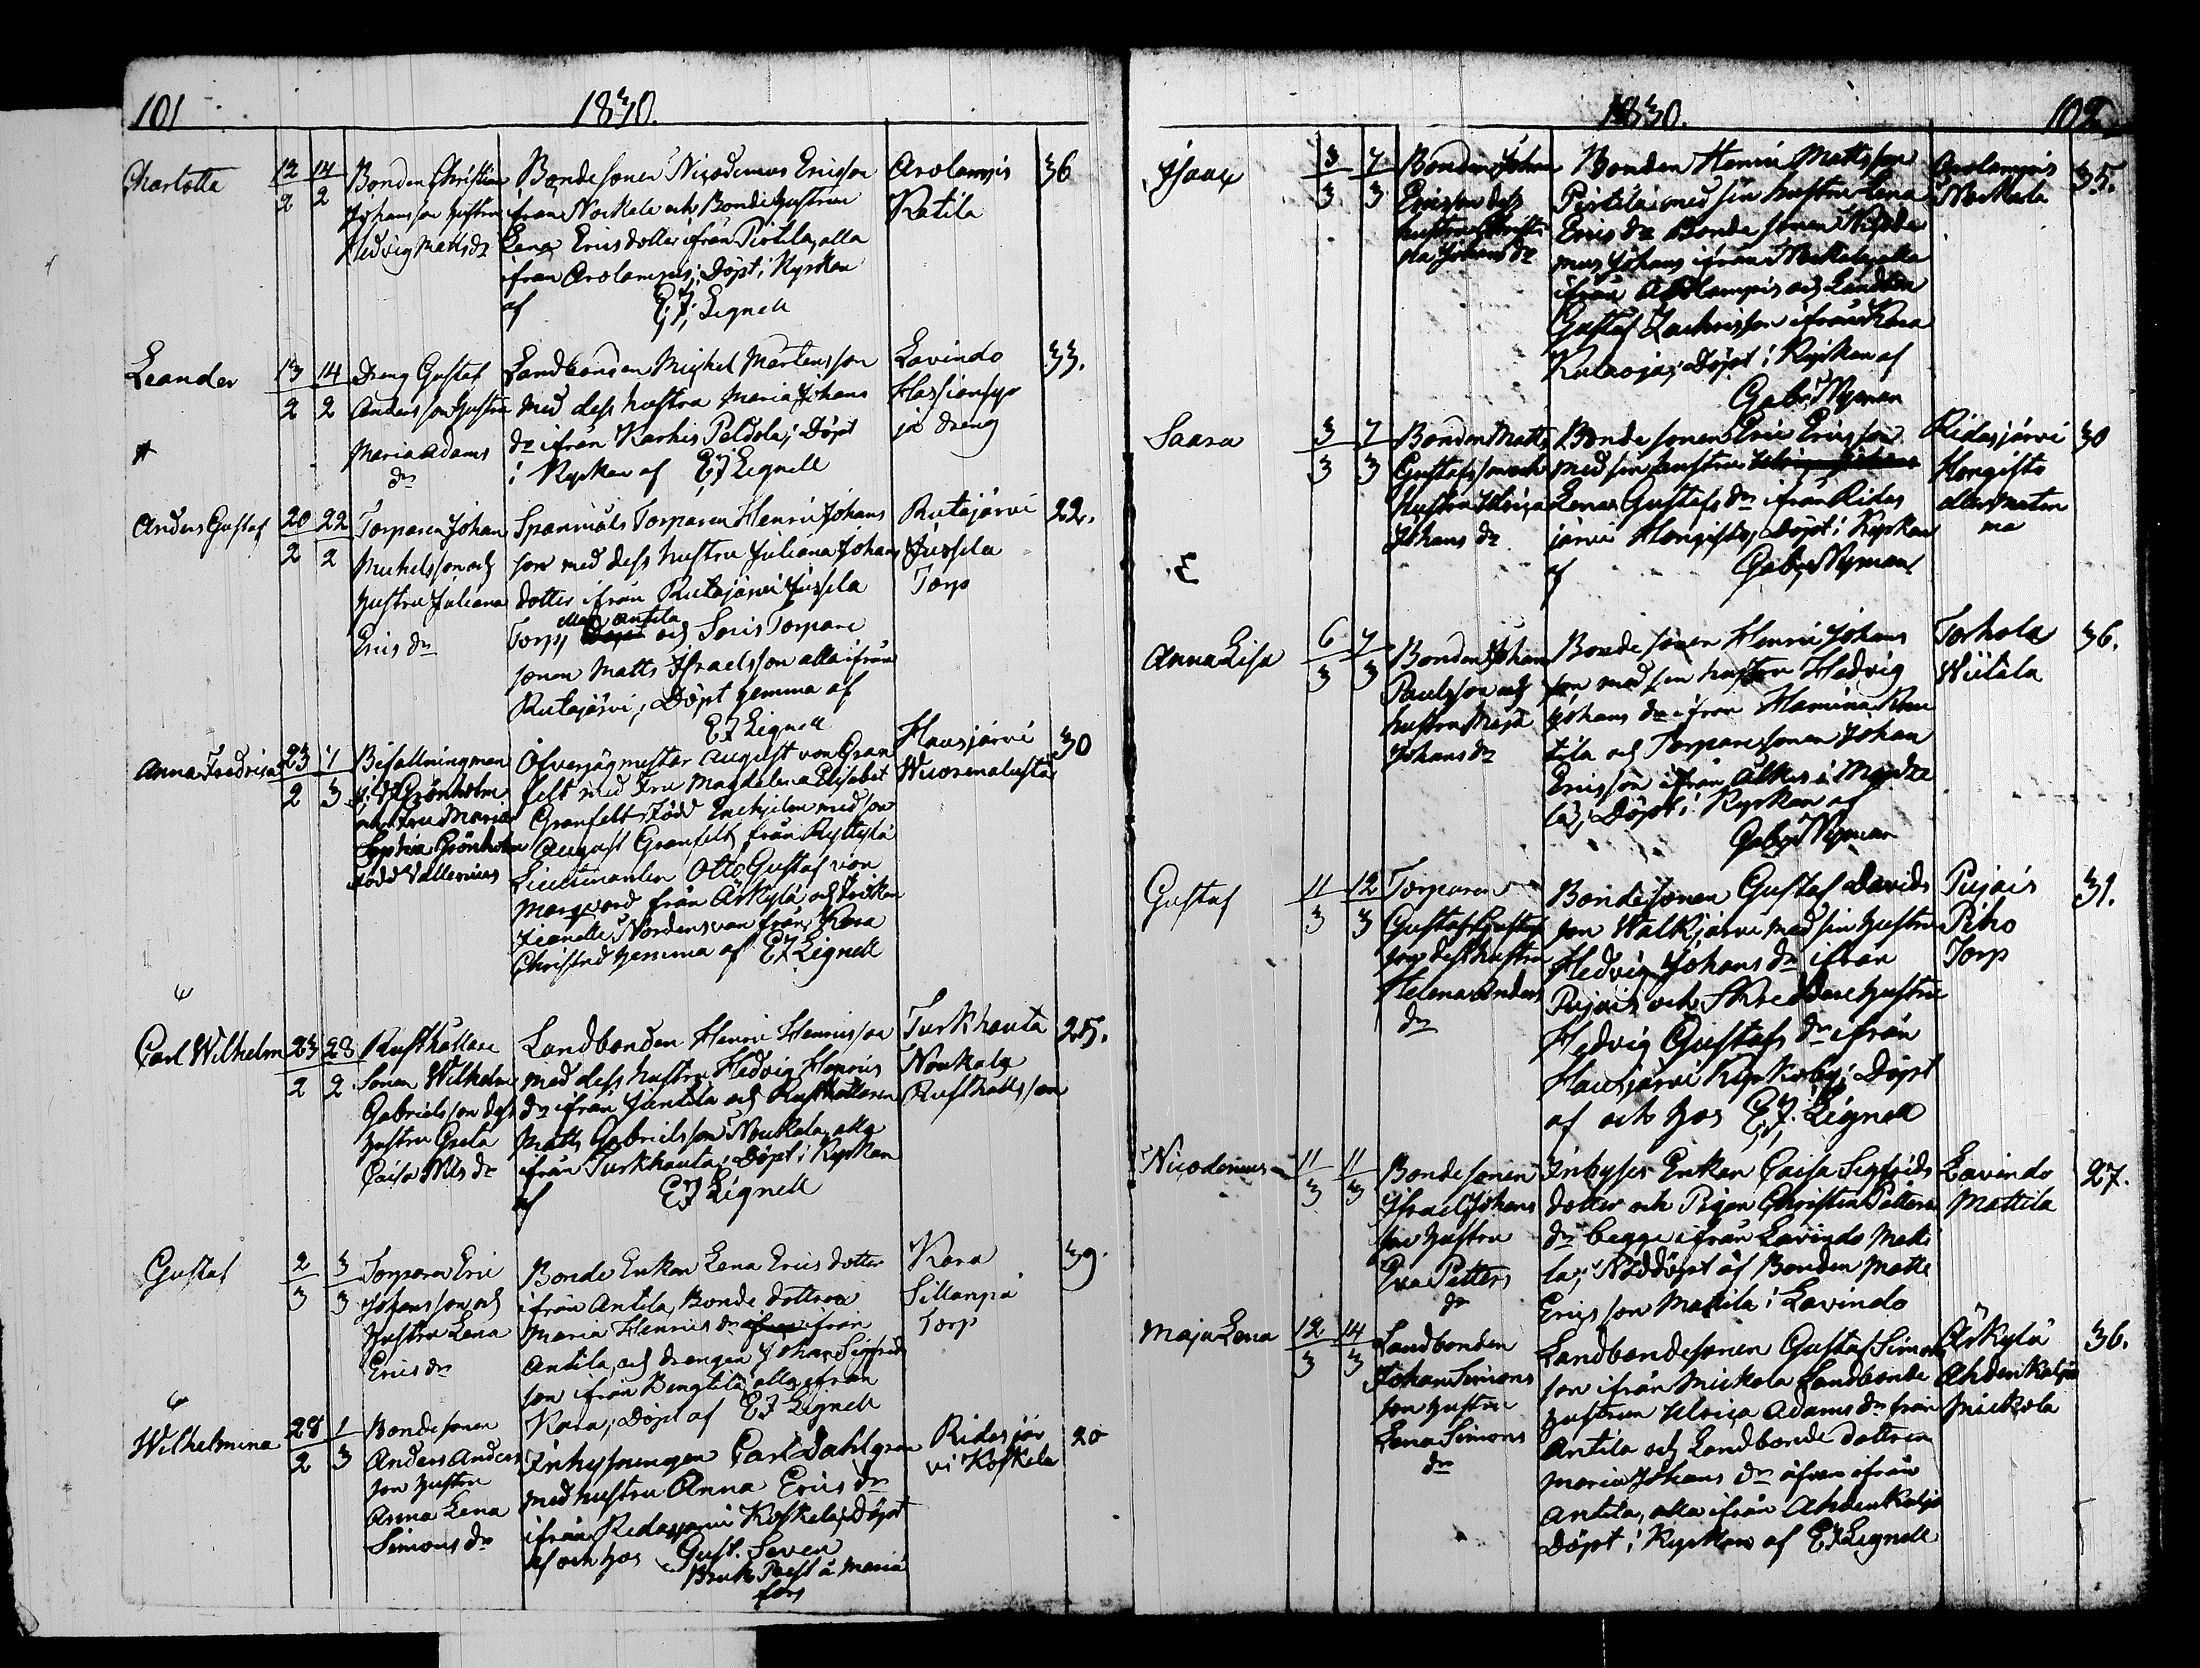 101
1830.
Charlotta 12/2 14/2
Bonden Christian
Johansson hustru
Hedvig Mattsdr
Bondesonen Nicodemus Ericsson
från Nockala och Bondehustrun
Lena Ericsdotter ifrån Pirtila, alla
ifrån Arolampis; Döpt i Kyrkan
af E; J; Lignell
Arolampis
Katila
36
Leander 13/2 14/2
Dreng Gustaf
Andersson hustru
Maria Adams
dr
Landbonden Michel Mårtensson
med dess hustru Maria Johans
dr ifrån Karhis Peldola; Döpt
i Kyrkan af EJ Lignell
Lavindo
jo Dreng
33.
Anders Gustaf 20/2 22/2
Torparen Johan
Michelsson och
hustru Juliana
Erics dr
Spanmåls Torparen Henric Johans
son med dess hustru Juliana Johans
dotter ifrån Rutajärvi Jussila
Torp, och Torpare
sonen Matts Israelsson alla ifrån
Rutajärvi; Döpt hemma af
EJ Lignell
Rutajärvi
Jussila
Torp
22.
Anna Fredrica 23/2 1/3
Befallningman
Grönholm
och Fru Maria
Sophia Grönholm
född Vallenius
Öfverjägmästar August von Gran
felt med Fru Magdalena Elisabet
Granfelt född Enehjelm med son
August Granfelt från Ryttylä
Lieutnanten Otto Gustaf von
Marqvard från Äskylä och Fröken
Jeanette Nordensvan från Kara
Christnad hemma af EJ Lignell
Hausjärvi
30
Carl Wilhelm 23/2 28/2
Rusthållare
Sonen Wilhelm
Gabrielsson dess
hustru Greta
Caisa Nils dr
Landbonden Henric Henricsson
med dess hustru Hedvig Henrics
dr ifrån Juntila och Rusthållaren
Matts Gabrielsson Noukala, alla
ifrån Turkhauta; Döpt i Kyrkan
af EJ Lignell
Turkhauta
Noukala
Rusthålls son
25.
Gustaf 2/3 3/3
Torparen Eric
Johansson och
hustru Lena
Erics dr
Bonde Enkan Lena Erics dotter
ifrån Antila, Bonde dottren
Maria Henrics dr ifrån
Antila, och drengen Johan Sigfrids
son ifrån Bengtila alla ifrån
Kara; Döpt af EJ Lignell
Kara
Sillanpä
Torp
39.
Wilhelmina 28/2 1/3
Bondesonen
Anders Anders
son hustru
Anna Lena
Simons dr
Inhysningen Carl Dahlgren
med hustru Anna Erics dr
ifrån Ridasjärvi Koskela; Döpt
af och hos Gust. Seven
Bruks Prest å Maria
fors
Ridasjär
vi Koskela
20
1830.
102
Isaac 3/3 7/3
Bonden Johan
Ericsson dess
hustru Christi
na Johans dr
Bonden Henric Mattsson
Pirtilä med sin hustru Lena
Erics dr Bonde sonen Nicode
mus Johans ifrån Nockala, alla
ifrån Arolampis och Landbon
Gustaf Zachrisson ifrån Kara
Rutaoja; Döpt i Kyrkan af
Gabr. Nyman
Arolampis
Nockala
35.
Saara 3/3 7/3
Bonden Matts
Gustafsson och
hustru Ulrica
Johans dr
Bonde sonen Eric Ericsson
med sin hustru
Lena Gustafs dr ifrån Ridas
järvi Hongisto, Döpt i Kyrkan
af Gabr. Nyman
Ridasjärvi
Hongisto
30
E
Anna Lisa 6/3 7/3
Bonden Johan
Paulsson och
hustru Maja
Johans dr
Bonde sonen Henric Johans
son med sin hustru Hedvig
Johans dr ifrån Hamina Kau
tila och Torparesonen Johan
Ericsson ifrån Alkus i Mäntzä
lä; Döpt i Kyrkan af
Gabr. Nyman
Torhola
Wiitala
36.
Gustaf 11/3 12/3
Torparen
Gustaf Gustafs
son dess hustru
Helena Anders
dr
Bondesonen Gustaf Davids
son Walkjärvi med sin hustru
Hedvig Johans dr ifrån
Pujois och Skreddarehustru
Hedvig Gustafs dr ifrån
Hausjärvi Kyrkoby; Döpt
af och hos E; J; Lignell
Pujois
Piho
Torp
31.
Nicodemus 11/3 11/3
Bondesonen
Israel Johans
son hustru
Eva Petters
dr
Inhyses Enkan Caisa Sigfrids
dotter och Pigan Christina Petters
dr begge ifrån Lavindo Matti
la; Nöddöpt af Bonden Matts
Ericsson Mattila i Lavindo
Lavindo
Mattila
27.
Maja Lena 12/3 14/3
Landbonden
Johan Simons
son hustru
Lena Simons
dr
Landbondesonen Gustaf Simons
son ifrån Mickola Landbonde
hustrun Ulrica Adams dr från
Antila och Landbonde dottren
Maria Johans dr äfven ifrån
Antila, alla ifrån Ahdenkaljo
Döpt i Kyrkan af EJ Lignell
Äskylä
Ahdenkaljo
Mickola
36.